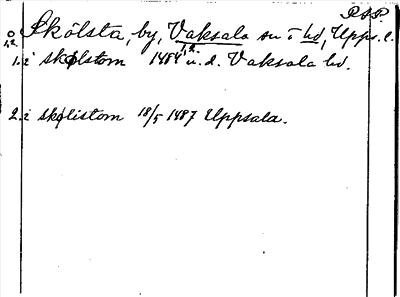 RAP.
Skölsta, by, Vaksala sn o hd, Upps. l.
1. i skølstom 1484 u. d. Vaksala hd.
2. i skølistom 18/5 1487 Uppsala.